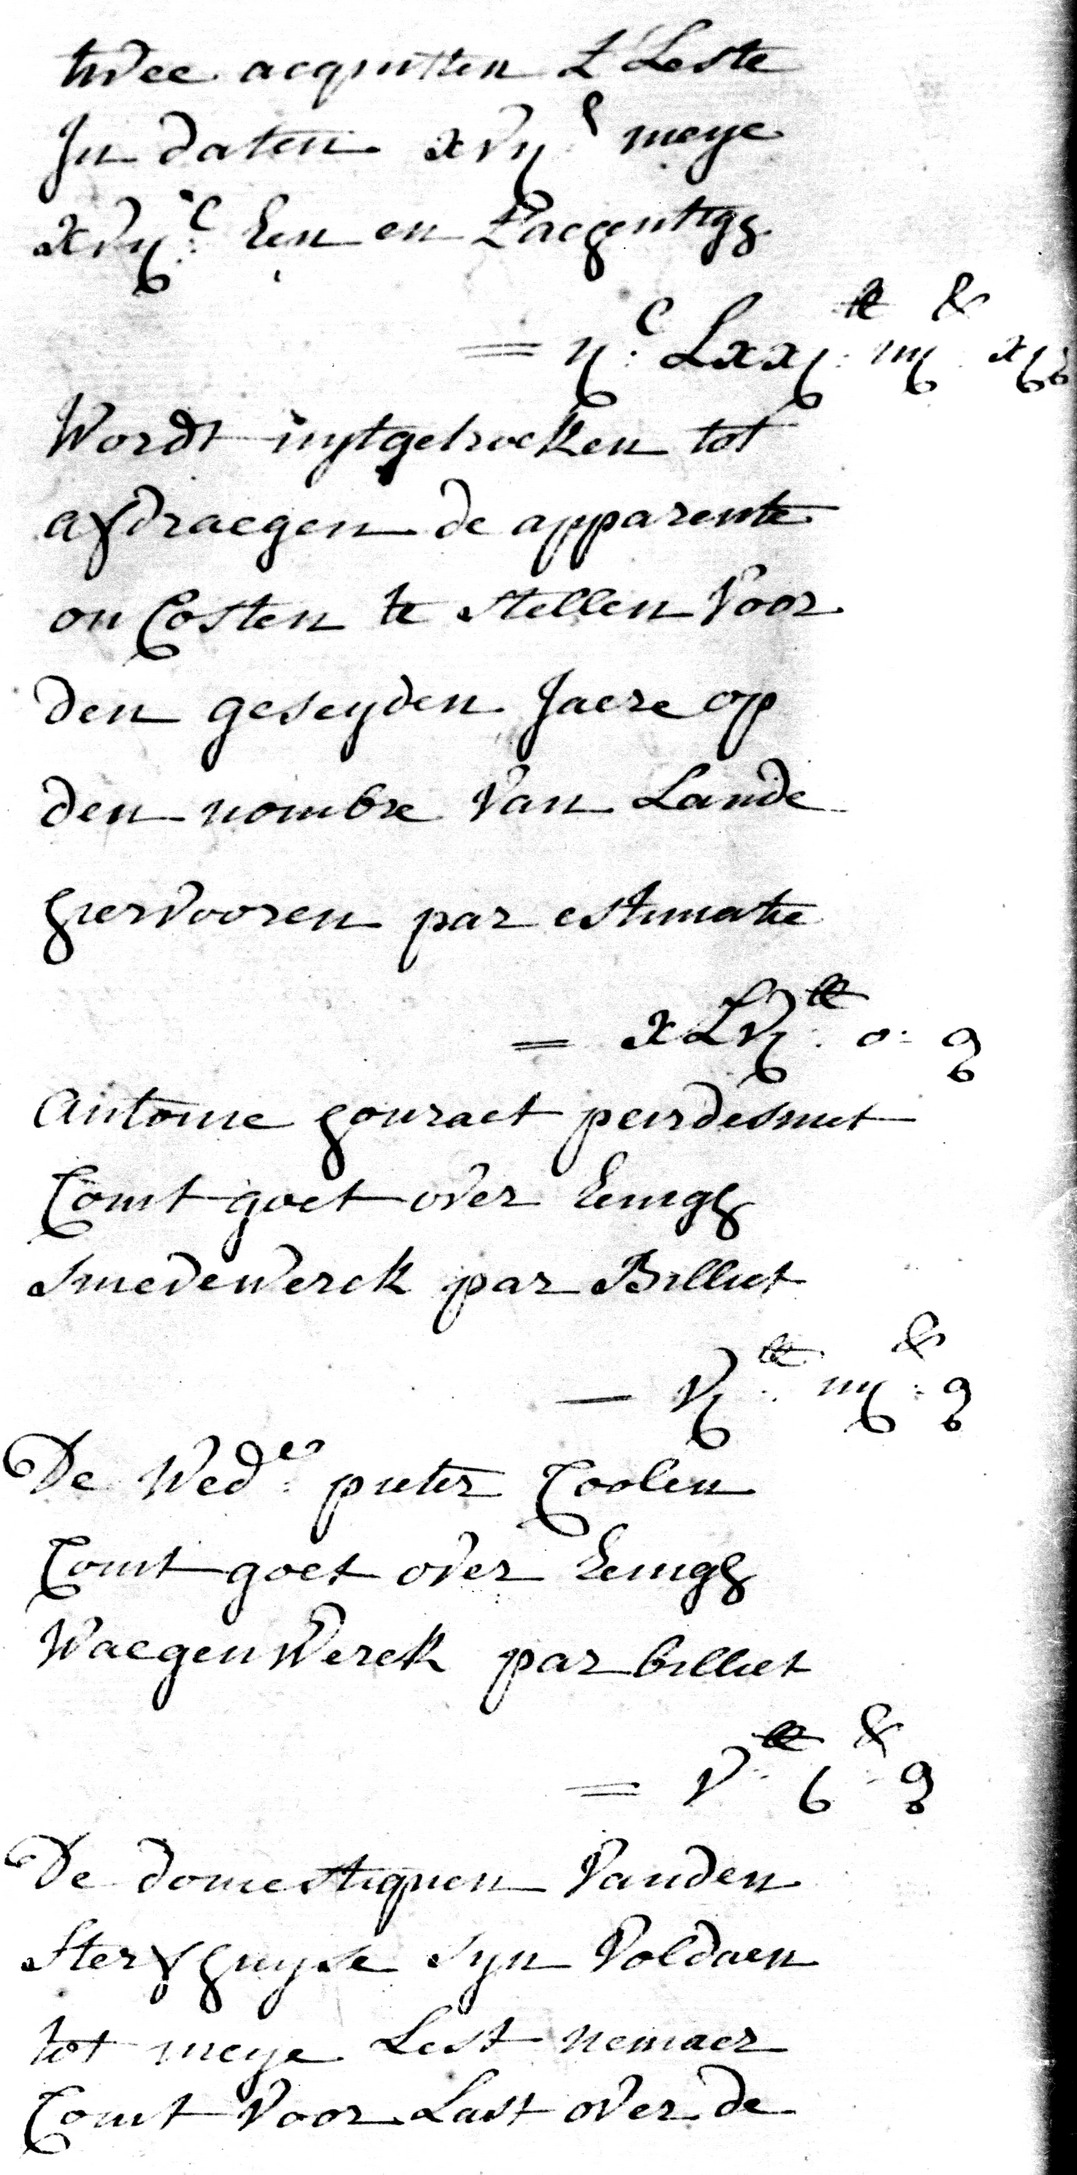 twee acquitten t'Leste
In daten xvij.e meye
xvij.C Een en tachentigh
= ij.C Lxxj. lb iiij. s xj g
Wordt uijtgetrocken tot
afdraegen de apparente
onCosten te stellen voor
den geseyden Jaere op
den nombre van Lande
hiervooren par estimatie
= xLvj lb. o. g
Antoine houzaet peirdesmet
Comt goet over Eenigh
smedewerck par Billiet
— vj lb. iiij s. g
De Wed.e pieter Coolen
Comt goet over Eenigh
WaegenWerck par billiet
= v lb. j s. g
De domestiquen Vanden
Sterfhuyse syn Voldaen
tot meye Lest nemaer
Comt Voor Last over de